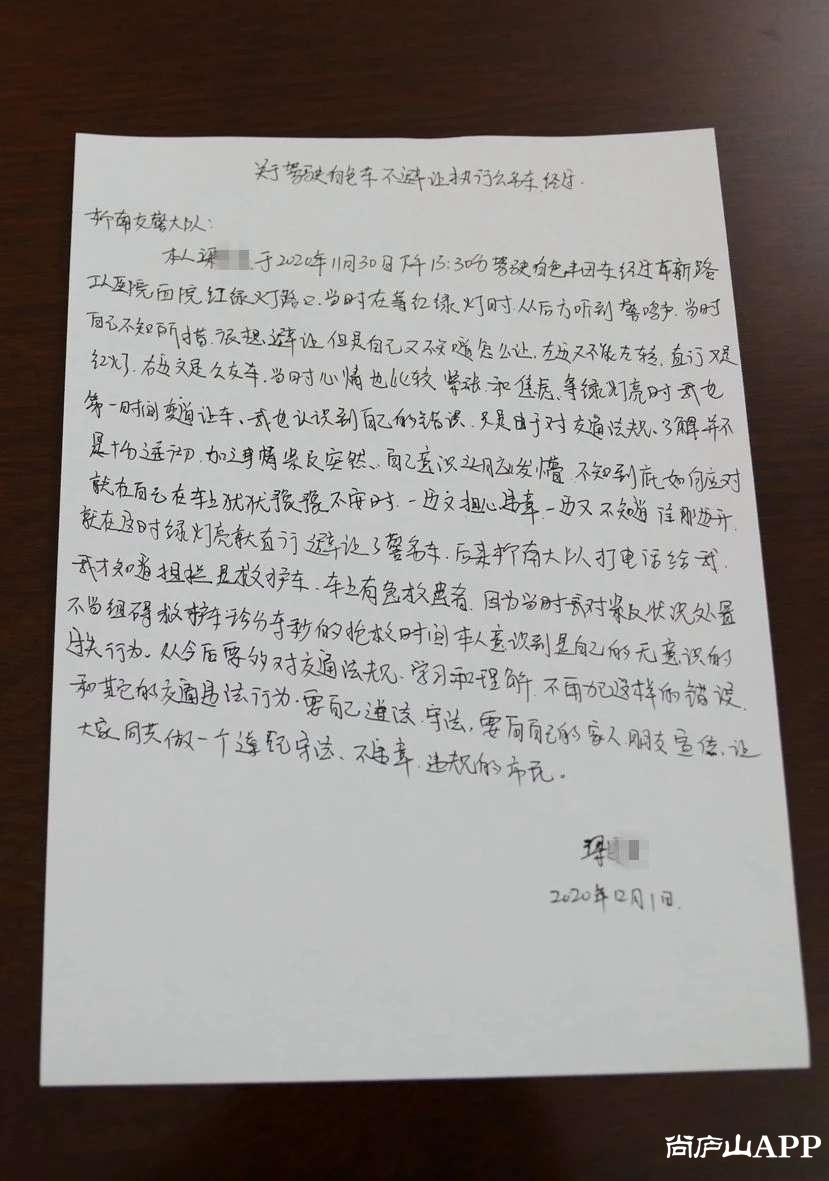 关于驾驶白色车不避让执行公务车经过.
柳南交警大队:
本人梁于2020年11月30日下午15:30分驾驶白色丰田车经过革新路
工人医院西院红绿灯路口.当时在等红绿灯时.从后方听到警鸣声.当时
自己不知所措.很想避让但是自己又不知道怎么让.左边又不能左转.直行又是
红灯.右边又是公交车.当时心情也比较紧张.和焦虑.等绿灯亮时我也
第一时间变道让车、我也认识到自己的错误.只是由于对交通法规、了解并不
是十分透切.加之事情紧急突然、自己意识之间发懵.不知到底如何应对
就在自己在车上犹犹豫豫不安时.一边又担心违章.一边又不知道往那边开.
就在这时绿灯亮就直行避让了警务车.后来柳南大队打电话给我.
我才知道担拦是救护车.车上有急救患者.因为当时我对紧急状况处置
不当组碍救护车诊分争秒的抢救时间本人意识到是自己的无意识的
过失行为、从今后要多对交通法规、学习和理解.不再犯这样的错误.
和其它的交通违法行为.要自己遵法.守法,要向自己的家人朋友宣传、让
大家同共做一个遵纪守法、不违章.违规的市民。
梁
2020年12月1日.
尚庐山APP